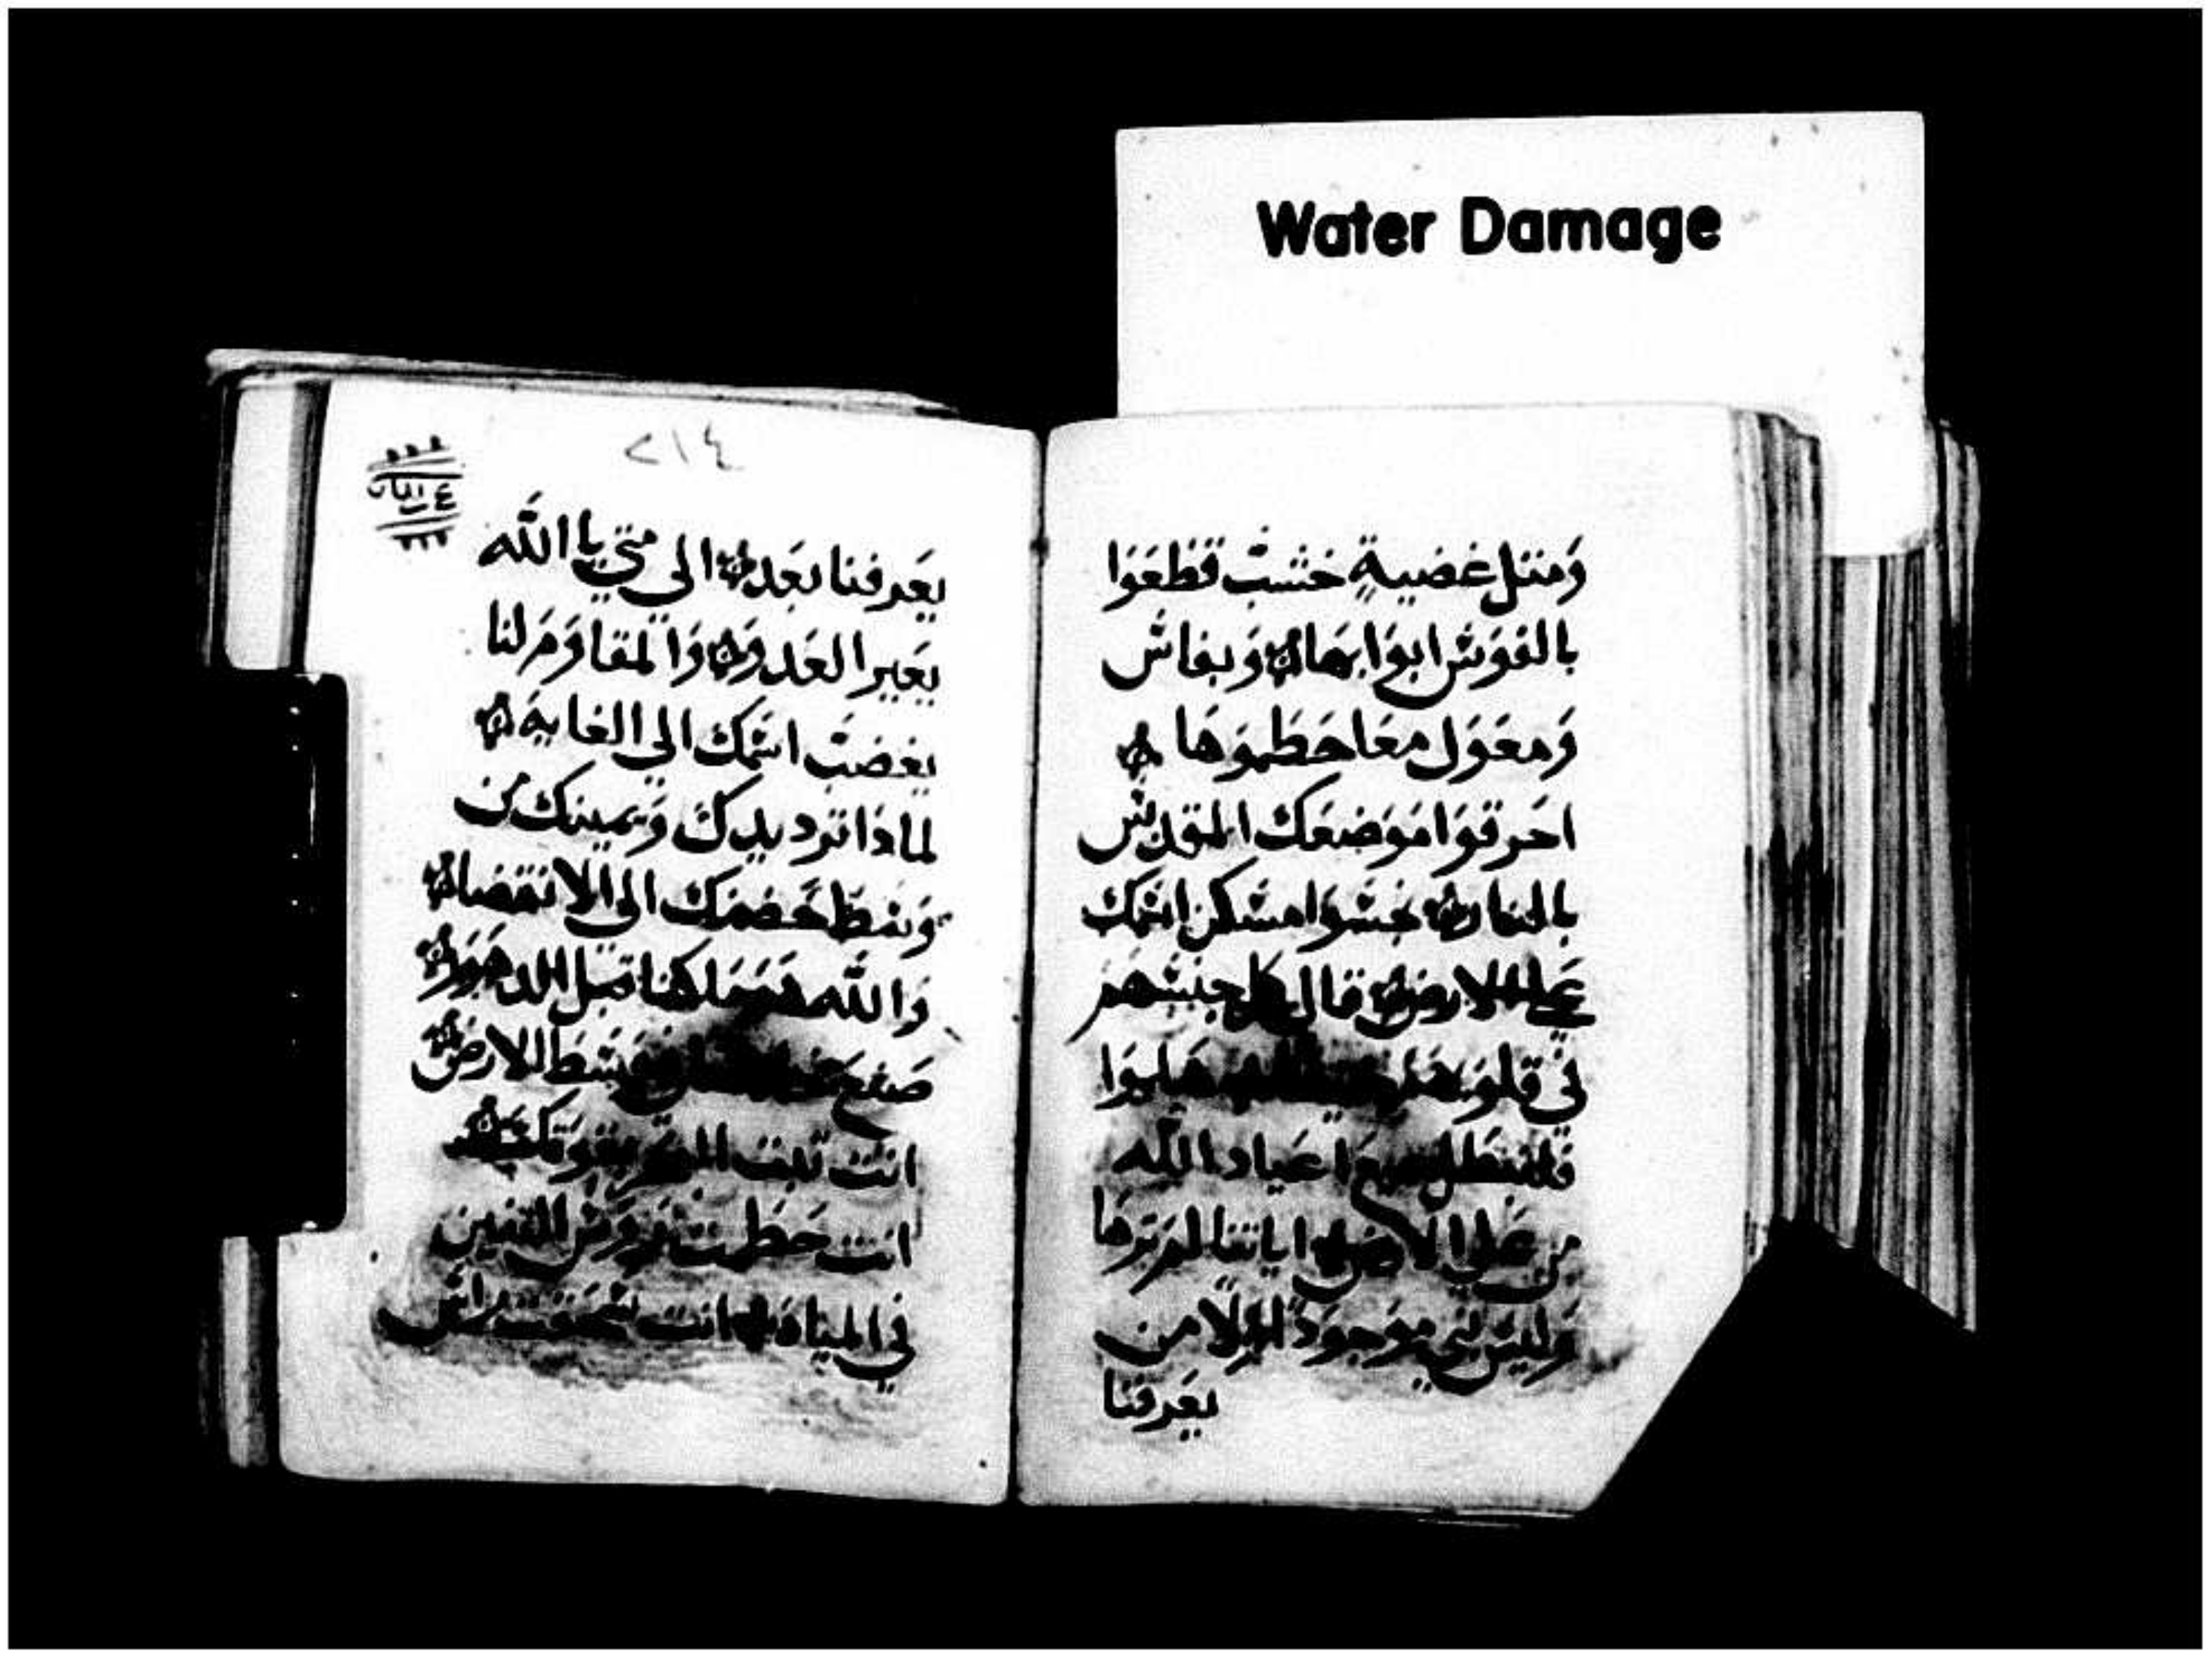 Water Damage
ومتل غضيةٍ خشب قطعوا
بالفوش ابوابها وبفاش
ومعول معا حطموها
احرقوا موضعك المقدس
بالنار مسكن اسمك
علي الارض قال جنسهم
في قلوبهم هلموا
فلنبطل اعياد الله
من علي الارض اياتنا لم نرها
وليس نبي موجودا ولا من
يعرفنا
٢١٤
يعرفنا بعد الي متي يا الله
يعير العدو والمقاوم لنا
يغضب اسمك الي الغاية
لماذا ترد يدك ويمينك من
وسط حضنك الي الانقضا
والله هو ملكنا قبل الدهور
صنع وسط الارض
انت ثبت البحر بقوتك
انت حطمت روس التنين
في المياه انت سحقت راس